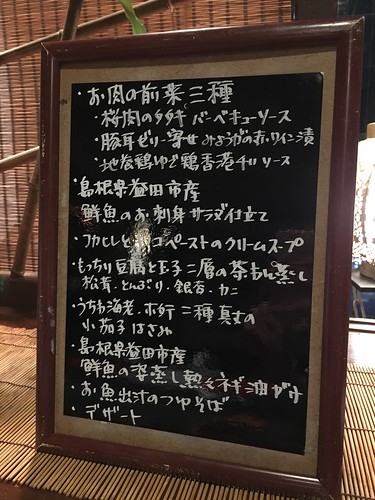 ・お肉の前菜三種
・桜肉のタタキ バーベキューソース
・豚耳ゼリー寄せ みょうがの赤ワイン漬
・地養鶏ゆで鶏香港チリソース
・島根県益田市産
鮮魚のお刺身サラダ仕立て
・フカヒレと ペーストのクリームスープ
・もっちり豆腐と玉子二層の茶わん蒸し
松茸・とんぶり・銀杏・カニ
・うちわ海老・ホタテ 二種真丈の
小茄子はさみ
・島根県益田市産
鮮魚の姿蒸し熱々ネギ油がけ
・お魚出汁のつゆそば
・デザート